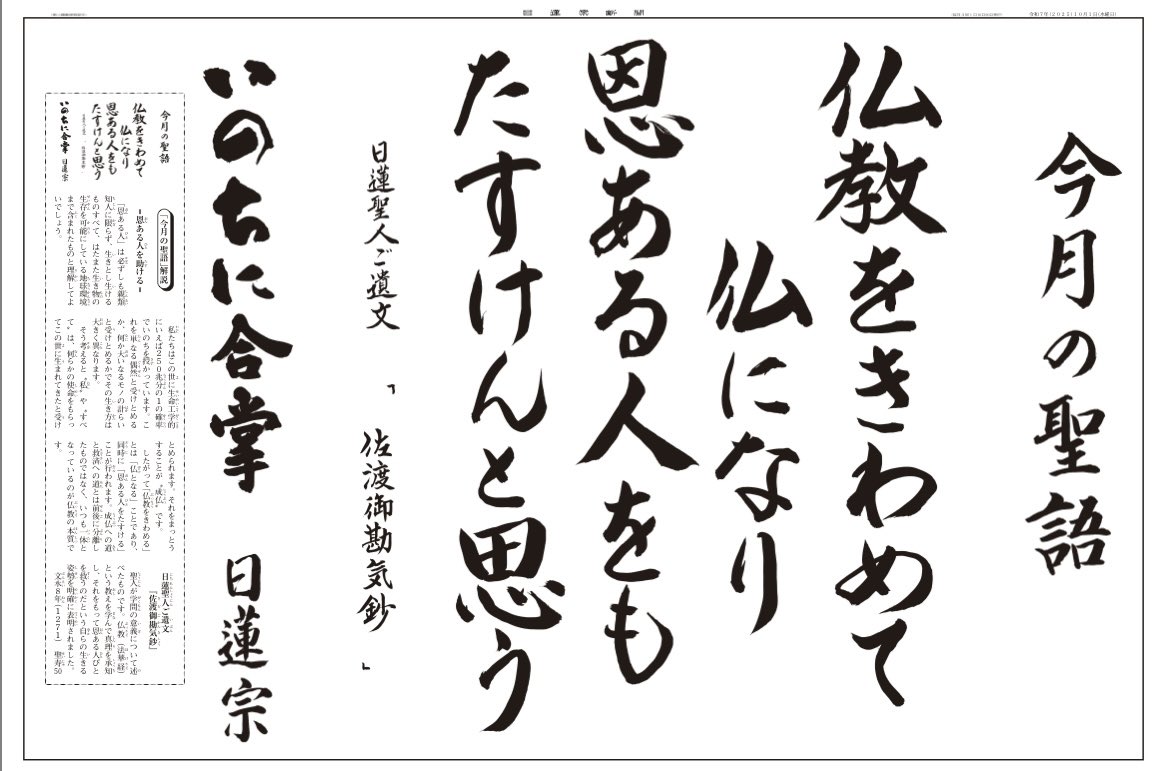 日蓮宗新聞
令和7年(2025)10月1日(水曜日)
今月の聖語
仏教をきわめて
仏になり
恩ある人をも
たすけんと思う
日蓮聖人ご遺文
「佐渡御勘気鈔」
いのちに合掌 日蓮宗
今月の聖語
仏教をきわめて
仏になり
恩ある人をも
たすけんと思う
いのちに合掌 日蓮宗
「今月の聖語」解説
-恩ある人を助ける-
「恩ある人」は必ずしも親類
知人に限らず、生きとし生ける
ものすべて、はたまた生き物の
生存を可能にしている地球環境
まで含まれたものと理解してよ
いでしょう。
私たちはこの世に生命工学的
にいえば250兆分の1の確率
でいのちを授かっています。こ
れを単なる偶然と受けとめる
か、何か大いなるモノの計らい
と受けとめるかでその生き方は
大きく異なります。
そう考えると、“私”や、“すべ
て”は、何らかの使命をもらっ
てこの世に生まれてきたと受け
とめられます。それをまっとう
することが“成仏”です。
したがって「仏教をきわめる」
とは「仏となる」ことであり、
同時に「恩ある人をたすける」
ことが行われます。成仏への道
と救済への道とは前後に分離し
たものではなく、いつも一体と
なっているのが仏教の本質で
す。
日蓮聖人ご遺文
『佐渡御勘気鈔』
聖人が学問の意義について述
べたものです。仏教(法華経)
という教えを学んで真理を承知
し、それをもって恩ある人びと
を救うのだという自らの生きる
姿勢を明確に表明されました。
文永8年(1271) 聖寿50